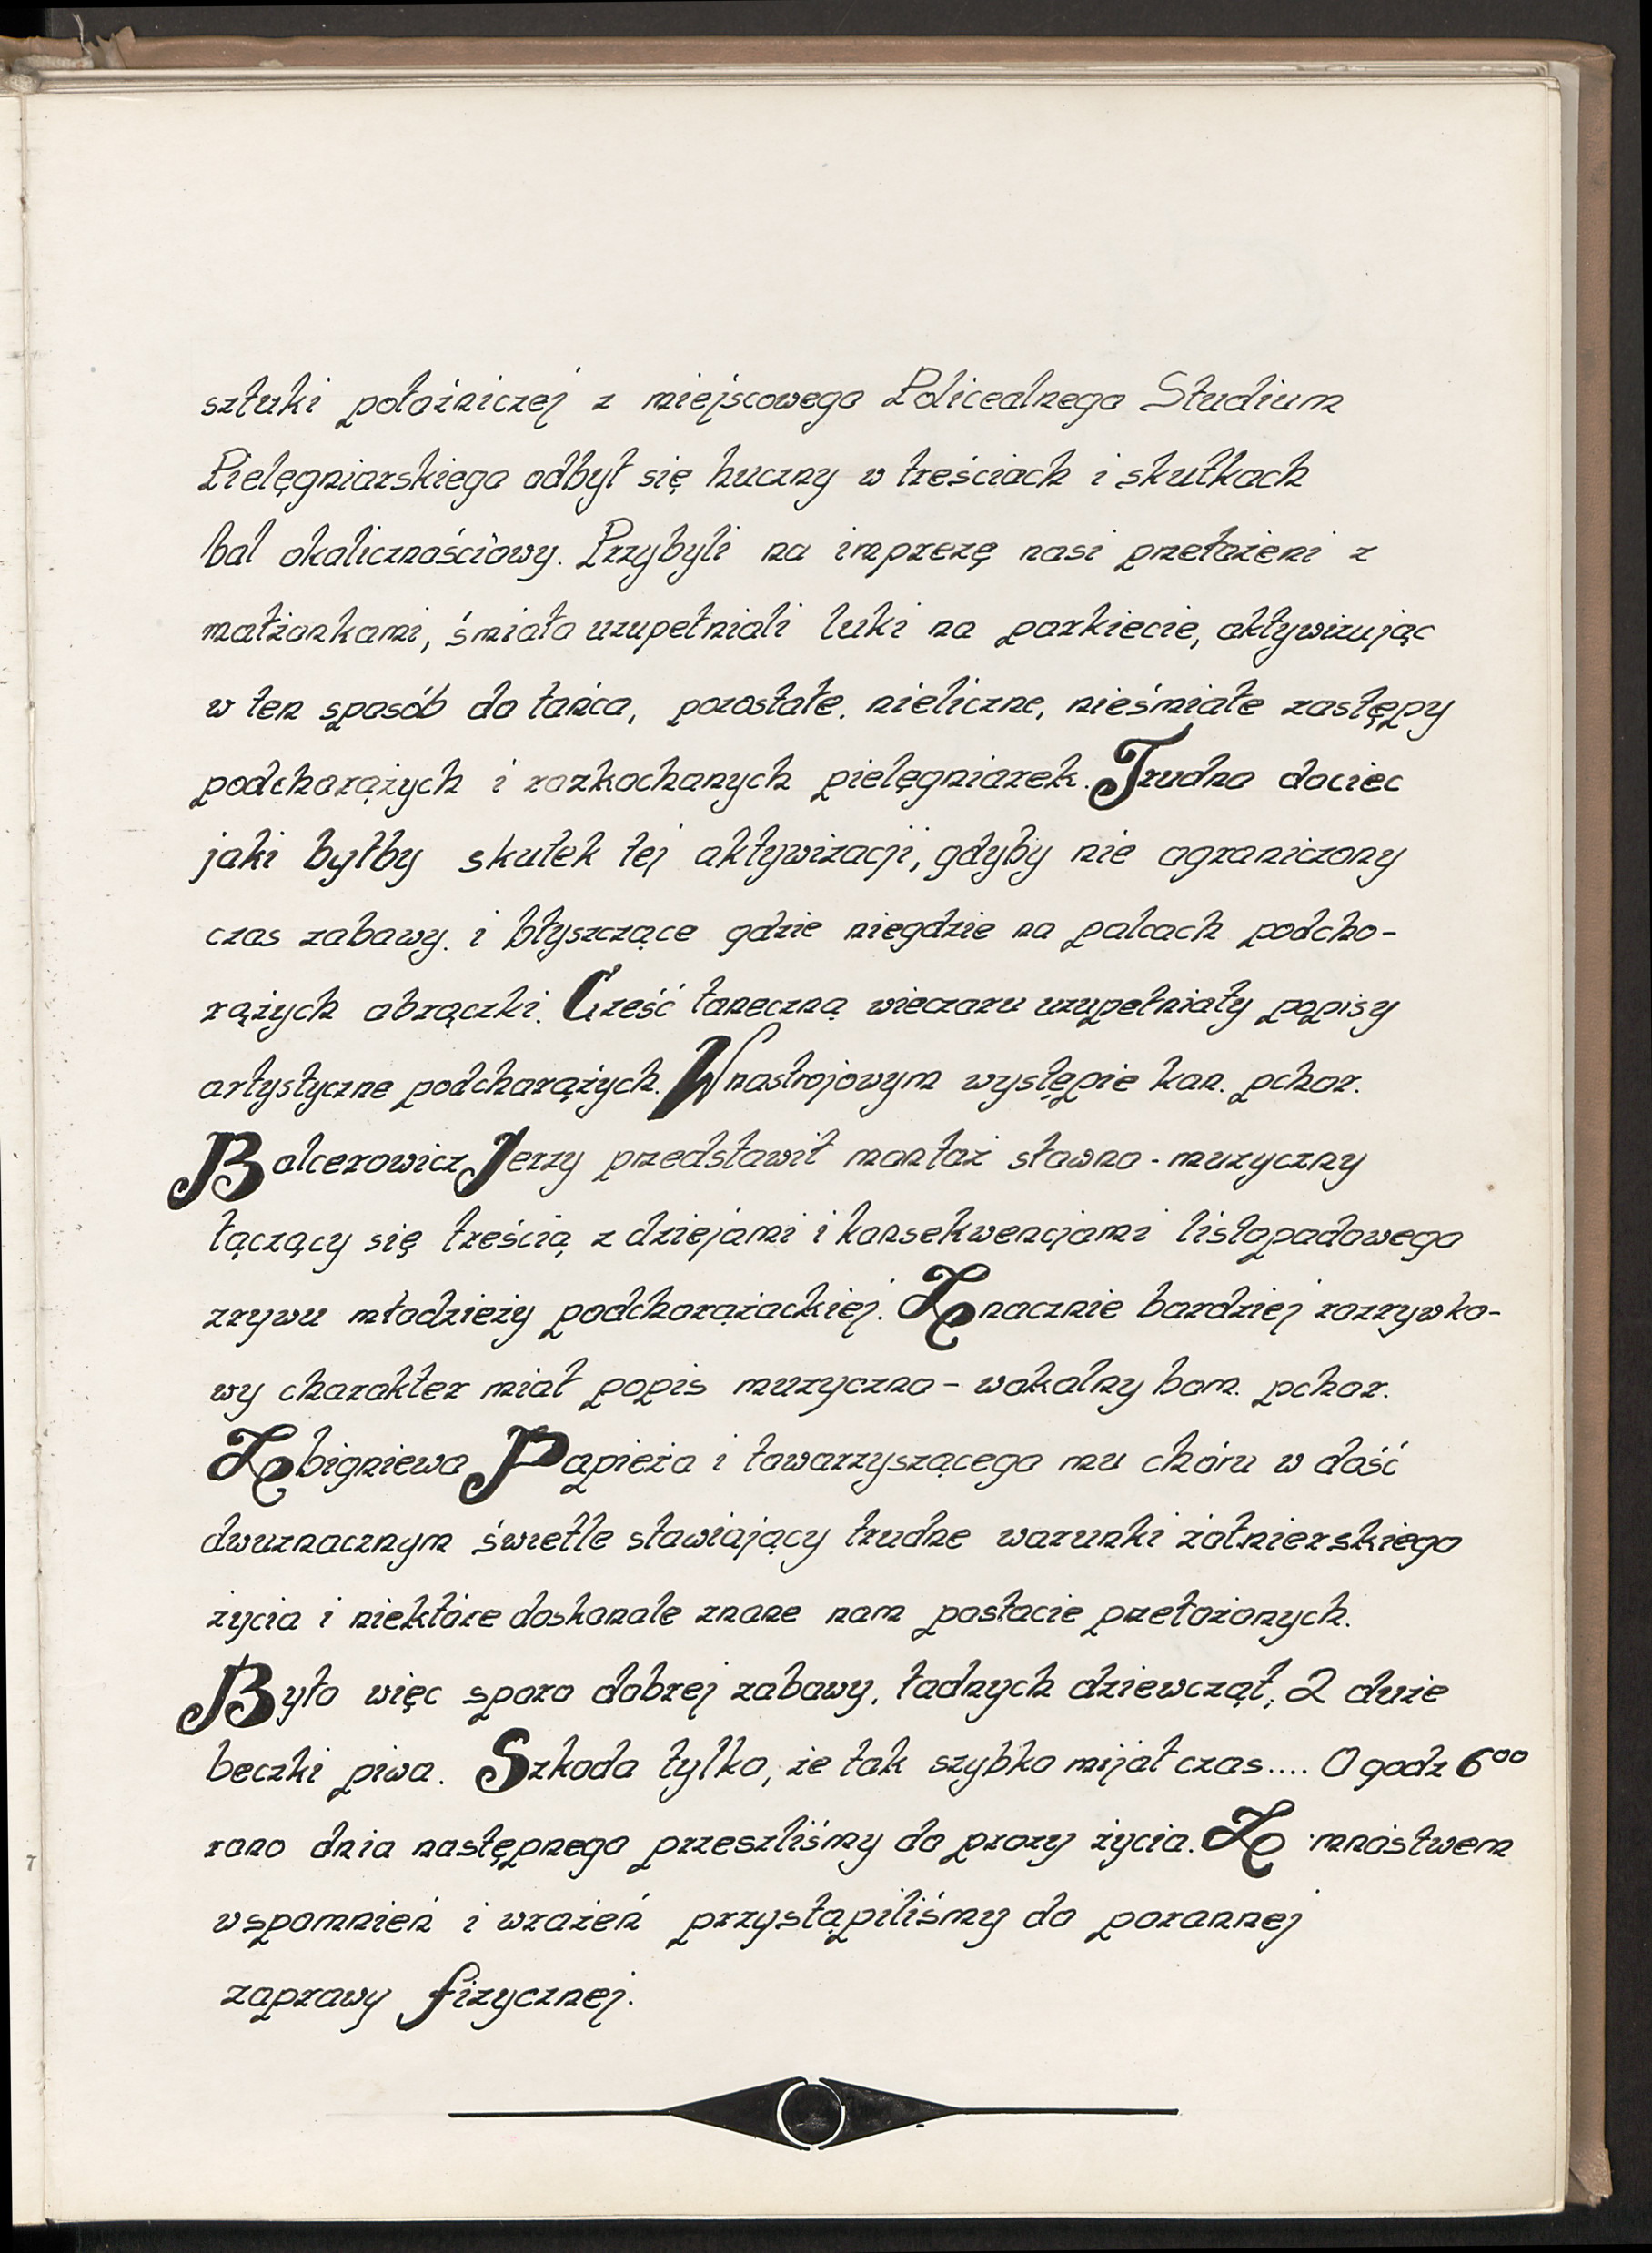 sztuki położniczej z miejscowego Policealnego Studium
Pielęgniarskiego odbył się huczny w treściach i skutkach
bal okolicznościowy. Przybyli na imprezę nasi przełożeni z
małżonkami, śmiało uzupełniali luki na parkiecie, aktywizując
w ten sposób do tańca, pozostałe, nieliczne, nieśmiałe zastępy
podchorążych i rozkochanych pielęgniarek. Trudno dociec
jaki byłby skutek tej aktywizacji, gdyby nie ograniczony
czas zabawy. i błyszczące gdzie niegdzie na palcach podcho-
rążych obrączki. Cześć taneczną wieczoru uzupełniały popisy
artystyczne podchorążych. W nastrojowym występie kan. pchor.
Balcerowicz Jerzy przedstawił montaż słowno-muzyczny
łączący się treścią z dziejami i konsekwencjami listopadowego
zrywu młodzieży podchorążackiej. Znacznie bardziej rozrywko-
wy charakter miał popis muzyczno-wokalny bom. pchor.
Zbigniewa Papieża i towarzyszącego mu chóru w dość
dwuznacznym świetle stawiający trudne warunki żołnierskiego
życia i niektóre doskonale znane nam postacie przełożonych.
Było więc sporo dobrej zabawy, ładnych dziewcząt, 2 duże
beczki piwa. Szkoda tylko, że tak szybko mijał czas.... O godz 6⁰⁰
rano dnia następnego przeszliśmy do prozy życia. Z mnóstwem
wspomnień i wrażeń przystąpiliśmy do porannej
zaprawy fizycznej.
7